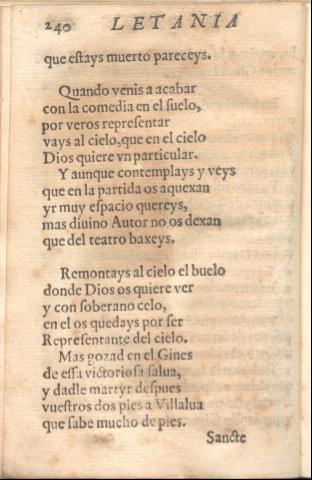 240 LETANIA
que eſtays muerto pareceys.
Quando venis a acabar
con la comedia en el ſuelo,
por veros repreſentar
vays al cielo, que en el cielo
Dios quiere vn particular.
Y aunque contemplays y veys
que en la partida os aquexan
yr muy eſpacio quereys,
mas diuino Autor no os dexan
que del teatro baxeys.
Remontays al cielo el buelo
donde Dios os quiere ver
y con ſoberano celo,
en el os quedays por ſer
Repreſentante del cielo.
Mas gozad en el Gines
de eſſa victorioſa ſalua,
y dadle martyr deſpues
vueſtros dos pies a Villalua
que ſabe mucho de pies.
Sancte